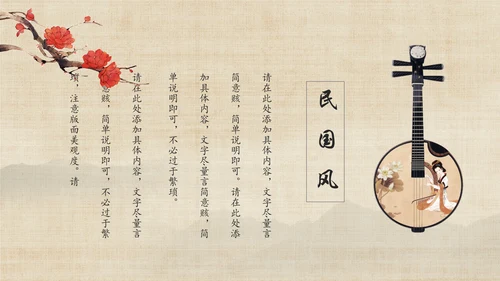 民国风
请在此处添加具体内容，文字尽量言
简意赅，简单说明即可。请在此处添
加具体内容，文字尽量言简意赅，简
单说明即可，不必过于繁琐。
请在此处添加具体内容，文字尽量言
意赅，简单说明即可，不必过于繁
琐，注意版面美观度。请